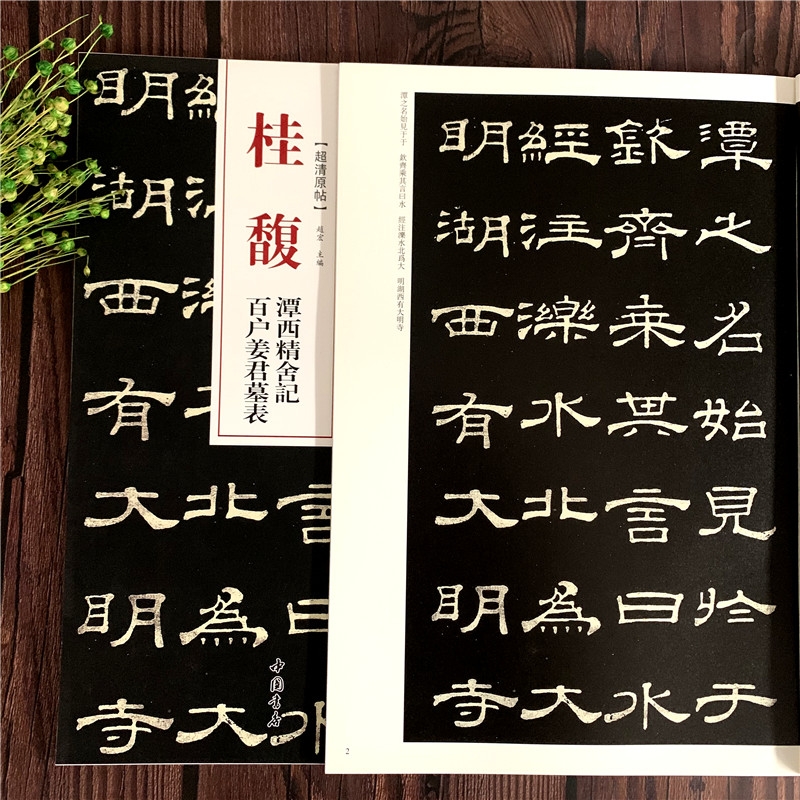 桂馥
【超清原帖】
趙宏 主編
潭西精舍記
百户姜君墓表
中国书店
言曰水
北為大
明湖西有大明寺
潭之名始見扵于
欽齊乗其言曰水
經注濼水北為大
明湖西有大明寺
潭之名始見于于 欽齊乘其言曰水 經注濼水北爲大 明湖西有大明寺
2